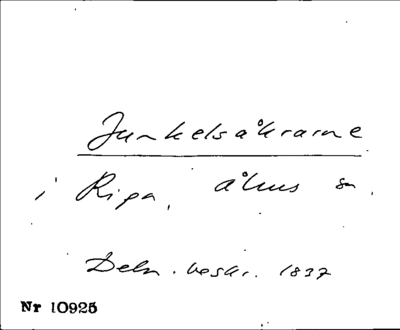 Junkelsåkrarne
i Ripa, Åhus sn.
Deln. beskr. 1837
Nr 10925